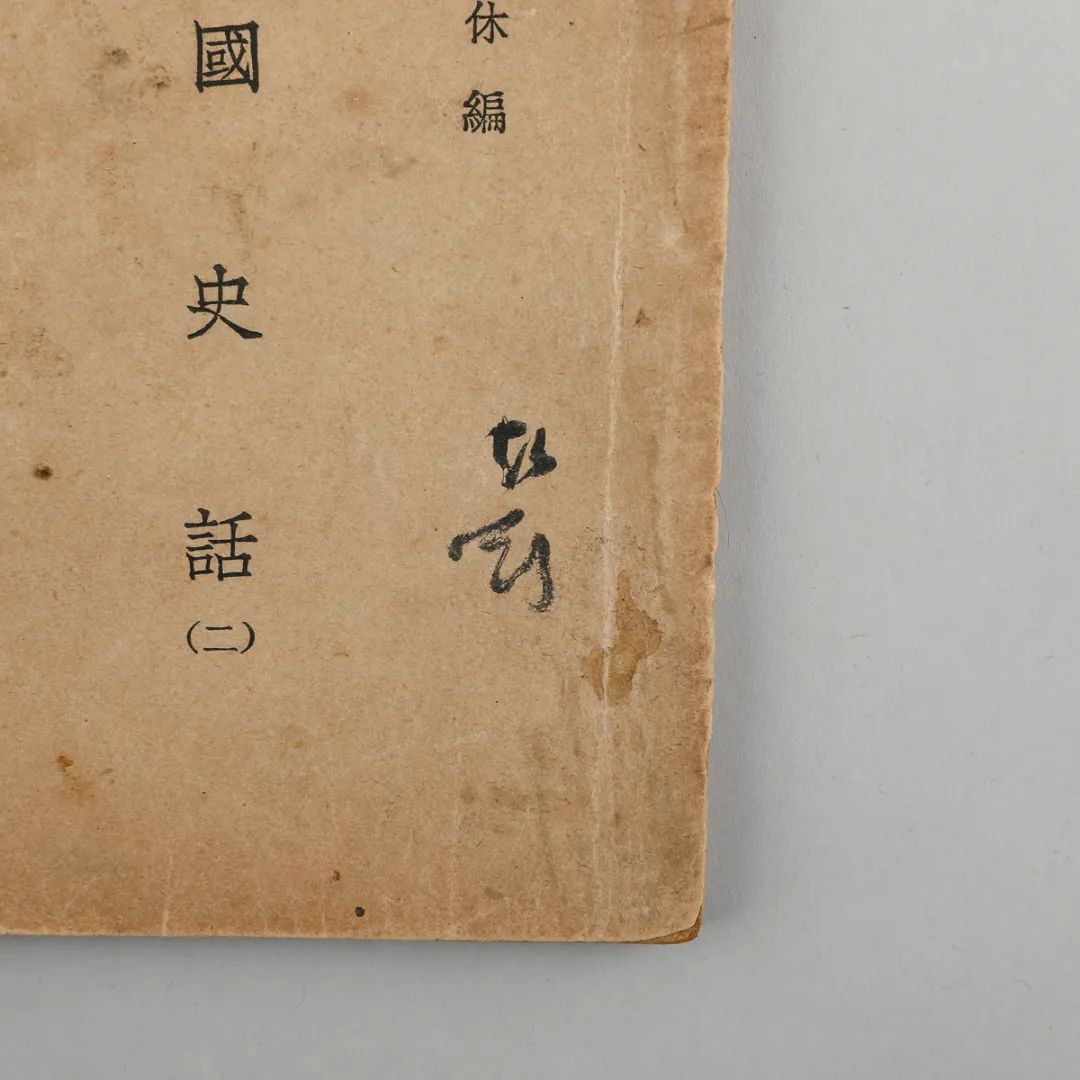 休編
國史話(二)